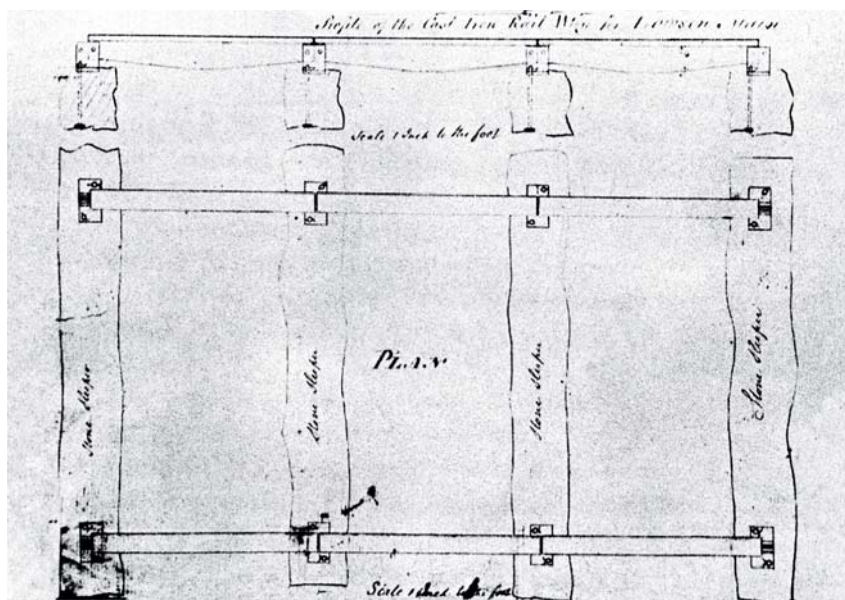 Profile of the Cast Iron Rail Way for
Scale 1 Inch to the foot
PLAN
Stone Sleeper
Stone Sleeper
Stone Sleeper
Stone Sleeper
Scale 1 Inch to the foot